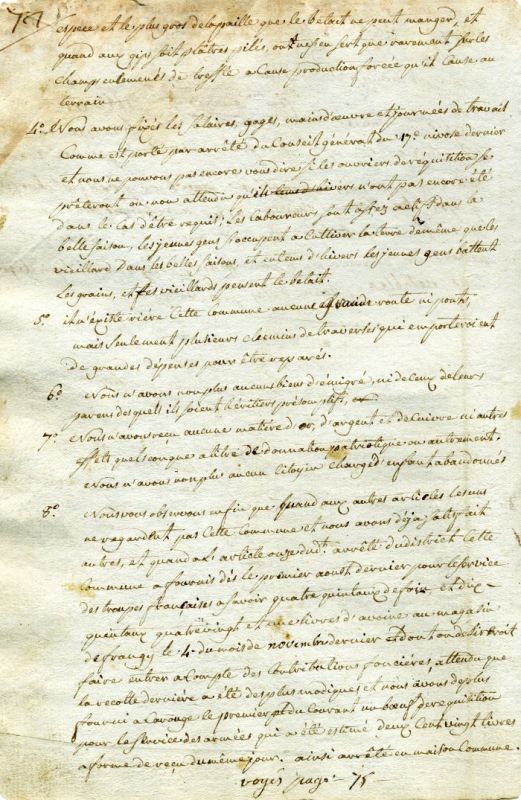 espece et le plus gros de la paille que le betail ne peut manger, et
quand aux gips soit plâtres pilés, on ne s'en sert que rarement sur les
champs enlemencés de tresfle a cause production forcée qu'il cause au
terrain
4º. Nous avons fixés les salaires, gages, maind'oeuvre et journées de travail
Comme est porté par arrêté du Conseil général du 17e nivose dernier
et nous ne pouvons pas encore vous dire si les ouvriers de réquisition se
prêteront ou non attendu qu'ils n'ont pas encore été
dans le cas d'être requis; les laboureurs sont assez actifs dans la
belle saison, les jeunes gens s'occupent a cultiver la terre de même que les
vieillard Dans les belles saisons, et en tems d'hivers les jeunes gens battent
les grains, et les vieillards pensent le betail.
5º. il n'existe riére cette commune aucune grande route ni ponts,
mais seulement plusieurs chemins de traverses qui emporteroient
de grandes dépenses pour être reparés.
6º Nous n'avons non plus aucuns biens d'émigré, ni de ceux de leurs
parens desquels ils soient héritiers présomptifs,
7º Nous n'avons reçu aucune matiére d'or, d'argent et de cuivre ni autres
effets quelsconque a titre de donnation patriotique ou autrement.
Nous n'avons non plus aucun citoyen chargé d'enfant abandonnés
8º. Nous vous observons enfin que quand aux autres articles les uns
ne regardent pas cette Commune et nous avons déja satisfait
autres, et quand a l'article onze dud.t arrêté du district cette
Commune a fournis dés le premier aoust dernier pour le service
des troupes françaises a savoir quatre quintaux de foin et dix
quintaux quatre vingt et une livres d'avoine au magasin
de frangy le 4 du mois de novembre dernier
faire entrer a compte des contributions foncières, attendu que
la recolte derniére a été des plus modiques et nous avons de plus
fourni a Carouge le premier du courant un boeuf de requisition
pour le service des armées qui a été estimé deux Cent vingt livres
a forme de reçu du même jour. ainsi arrêté en maison Commune.
voyés page 75